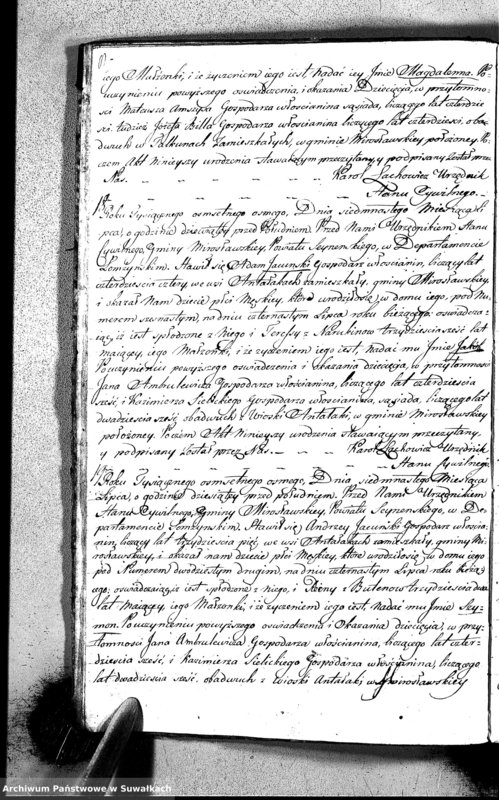 iego Małżonki, i że życzeniem iego iest, nadać iey Jmie Magdalenna. Po
uczynieniu powyższego oswiadczenia, i okazania Dziecięcia, w przytomno-
sci Mateusza Gospodarza włościanina sąsiada, liczącego lat czterdzie-
sci. tudzież Józefa Billa Gospodarza włościanina liczącego lat czterdzieści, oby-
dwuch w zamieszkałych, w gminie Mirosławskiey położoney. Po
czem Akt Ninieyszy urodzenia Stawaiącym przeczytany, y podpisany został przez
Nas. Karol Lachowicz Urzędnik
Stanu Cywilnego.
Roku Tysiącznego osmsetnego osmego, Dnia siedmnastego Miesiąca Li-
pca, o godzinie dziewiątey przed południem. Przed Nami Urzędnikiem Stanu
Cywilnego, Gminy Mirosławskiey, Powiatu Seynenskiego, w Departamencie
Łomżynskim. Stawił się Adam Jacuński Gospodarz włościanin, liczący lat
czterdziescia cztery, we wsi Antałakach zamieszkały, gminy Mirosławskiey,
i okazał Nam dziecie płci Męskiey, które urodziło się w domu iego, pod Nu-
merem szesnastym, na dniu czternastym Lipca roku bieżącego; oswiadcza-
iąc, iż iest spłodzone z Niego i Teressy z trzydziescia sześć lat
maiącey, iego Małżonki, i że życzeniem iego iest, nadać mu Jmie Jakób
Po uczynieniu powyższego oswiadczenia i okazania dziecięcia, w przytomnosci
Jana Ambrulewicza Gospodarza włościanina, liczącego lat czterdziescia
sześć, i Kazimierza Sielickiego Gospodarza włościanina, sąsiada, liczącego lat
dwadziescia sześć, obudwuch z wioski Antałaki, w gminie Mirosławskiey
położoney. Poczem Akt Ninieyszy urodzenia Stawaiącym przeczytany,
y podpisany został przez Nas. Karol Lachowicz Urzędnik
Stanu Cywilnego
Roku Tysiącznego osmsetnego osmego, Dnia siedmnastego Miesiąca
Lipca, o godzinie dziesiątey przed południem. Przed Nami Urzędnikiem
Stanu Cywilnego, Gminy Mirosławskiey, Powiatu Seynenskiego, w De-
partamencie Łomżynskim, Stawił się Andrzey Jacuński Gospodarz włościa-
nin, liczący lat trzydziescia pięć, we wsi Antałakach zamieszkały, gminy Mi-
rosławskiey, i okazał nam dziecie płci Męskiey, które urodziło się w domu iego
pod Numerem dwudziestym drugim, na dniu czternastym Lipca roku bieżą-
cego; oswiadczaiąc, iż iest spłodzone z niego, i z trzydziescia dwa
lat maiącey, iego Małżonki, i że życzeniem iego iest, nadać mu Jmie Szy-
mon. Po uczynieniu powyższego oswiadczenia i Okazania dziecięcia, w przy-
tomnosci Jana Ambrulewicza Gospodarza włościanina, liczącego lat czter-
dziescia sześć, i Kazimierza Sielickiego Gospodarza włościanina, liczącego
lat dwadziescia sześć, obudwuch z wioski Antałaki, w Mirosławskiey
Archiwum Państwowe w Suwałkach